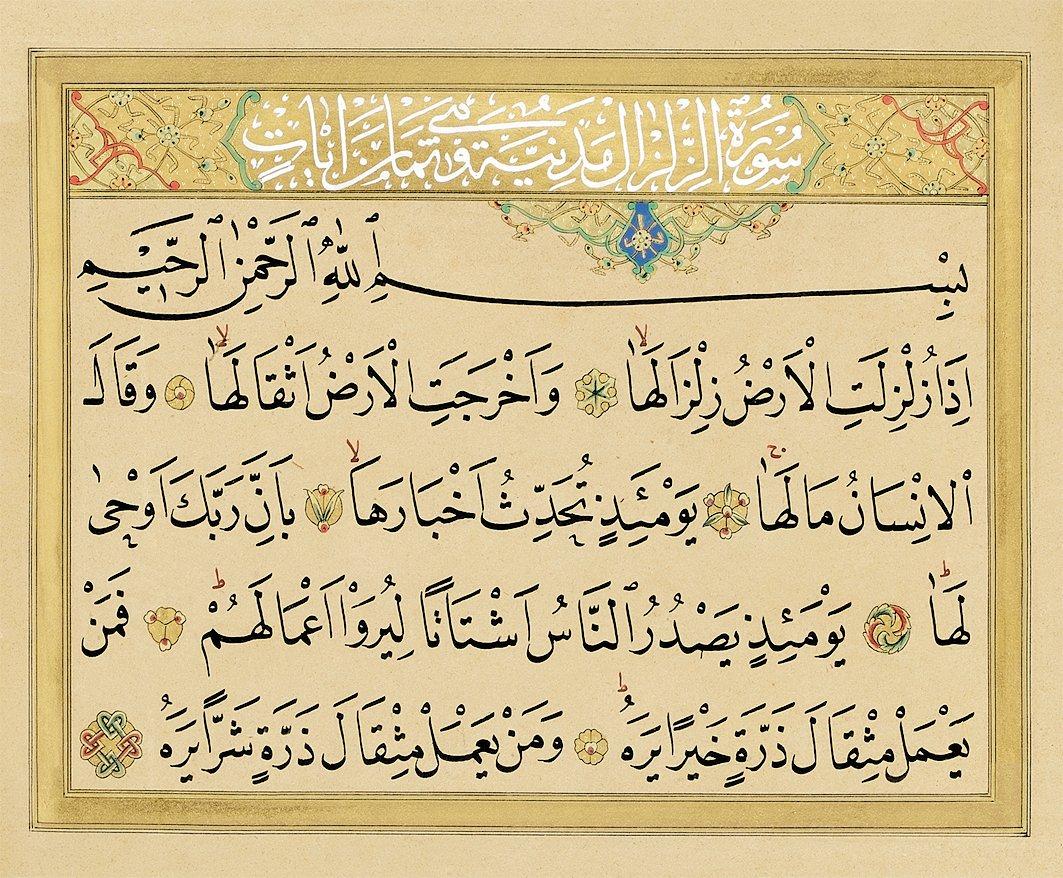 سُورَةُ الزِّلْزَالِ مَدَنِيَّةٌ وَهِيَ ثَمَانُ اٰيَاتٍ
بِسْمِ اللّٰهِ الرَّحْمٰنِ الرَّحٖيمِ
اِذَا زُلْزِلَتِ الْاَرْضُ زِلْزَالَهَاۙ وَاَخْرَجَتِ الْاَرْضُ اَثْقَالَهَاۙ وَقَالَ
الْاِنْسَانُ مَا لَهَاۚ يَوْمَئِذٍ تُحَدِّثُ اَخْبَارَهَاۙ بِاَنَّ رَبَّكَ اَوْحٰى
لَهَاۜ يَوْمَئِذٍ يَصْدُرُ النَّاسُ اَشْتَاتًا لِيُرَوْا اَعْمَالَهُمْۜ فَمَنْ
يَعْمَلْ مِثْقَالَ ذَرَّةٍ خَيْرًا يَرَهُۜ وَمَنْ يَعْمَلْ مِثْقَالَ ذَرَّةٍ شَرًّا يَرَهُ